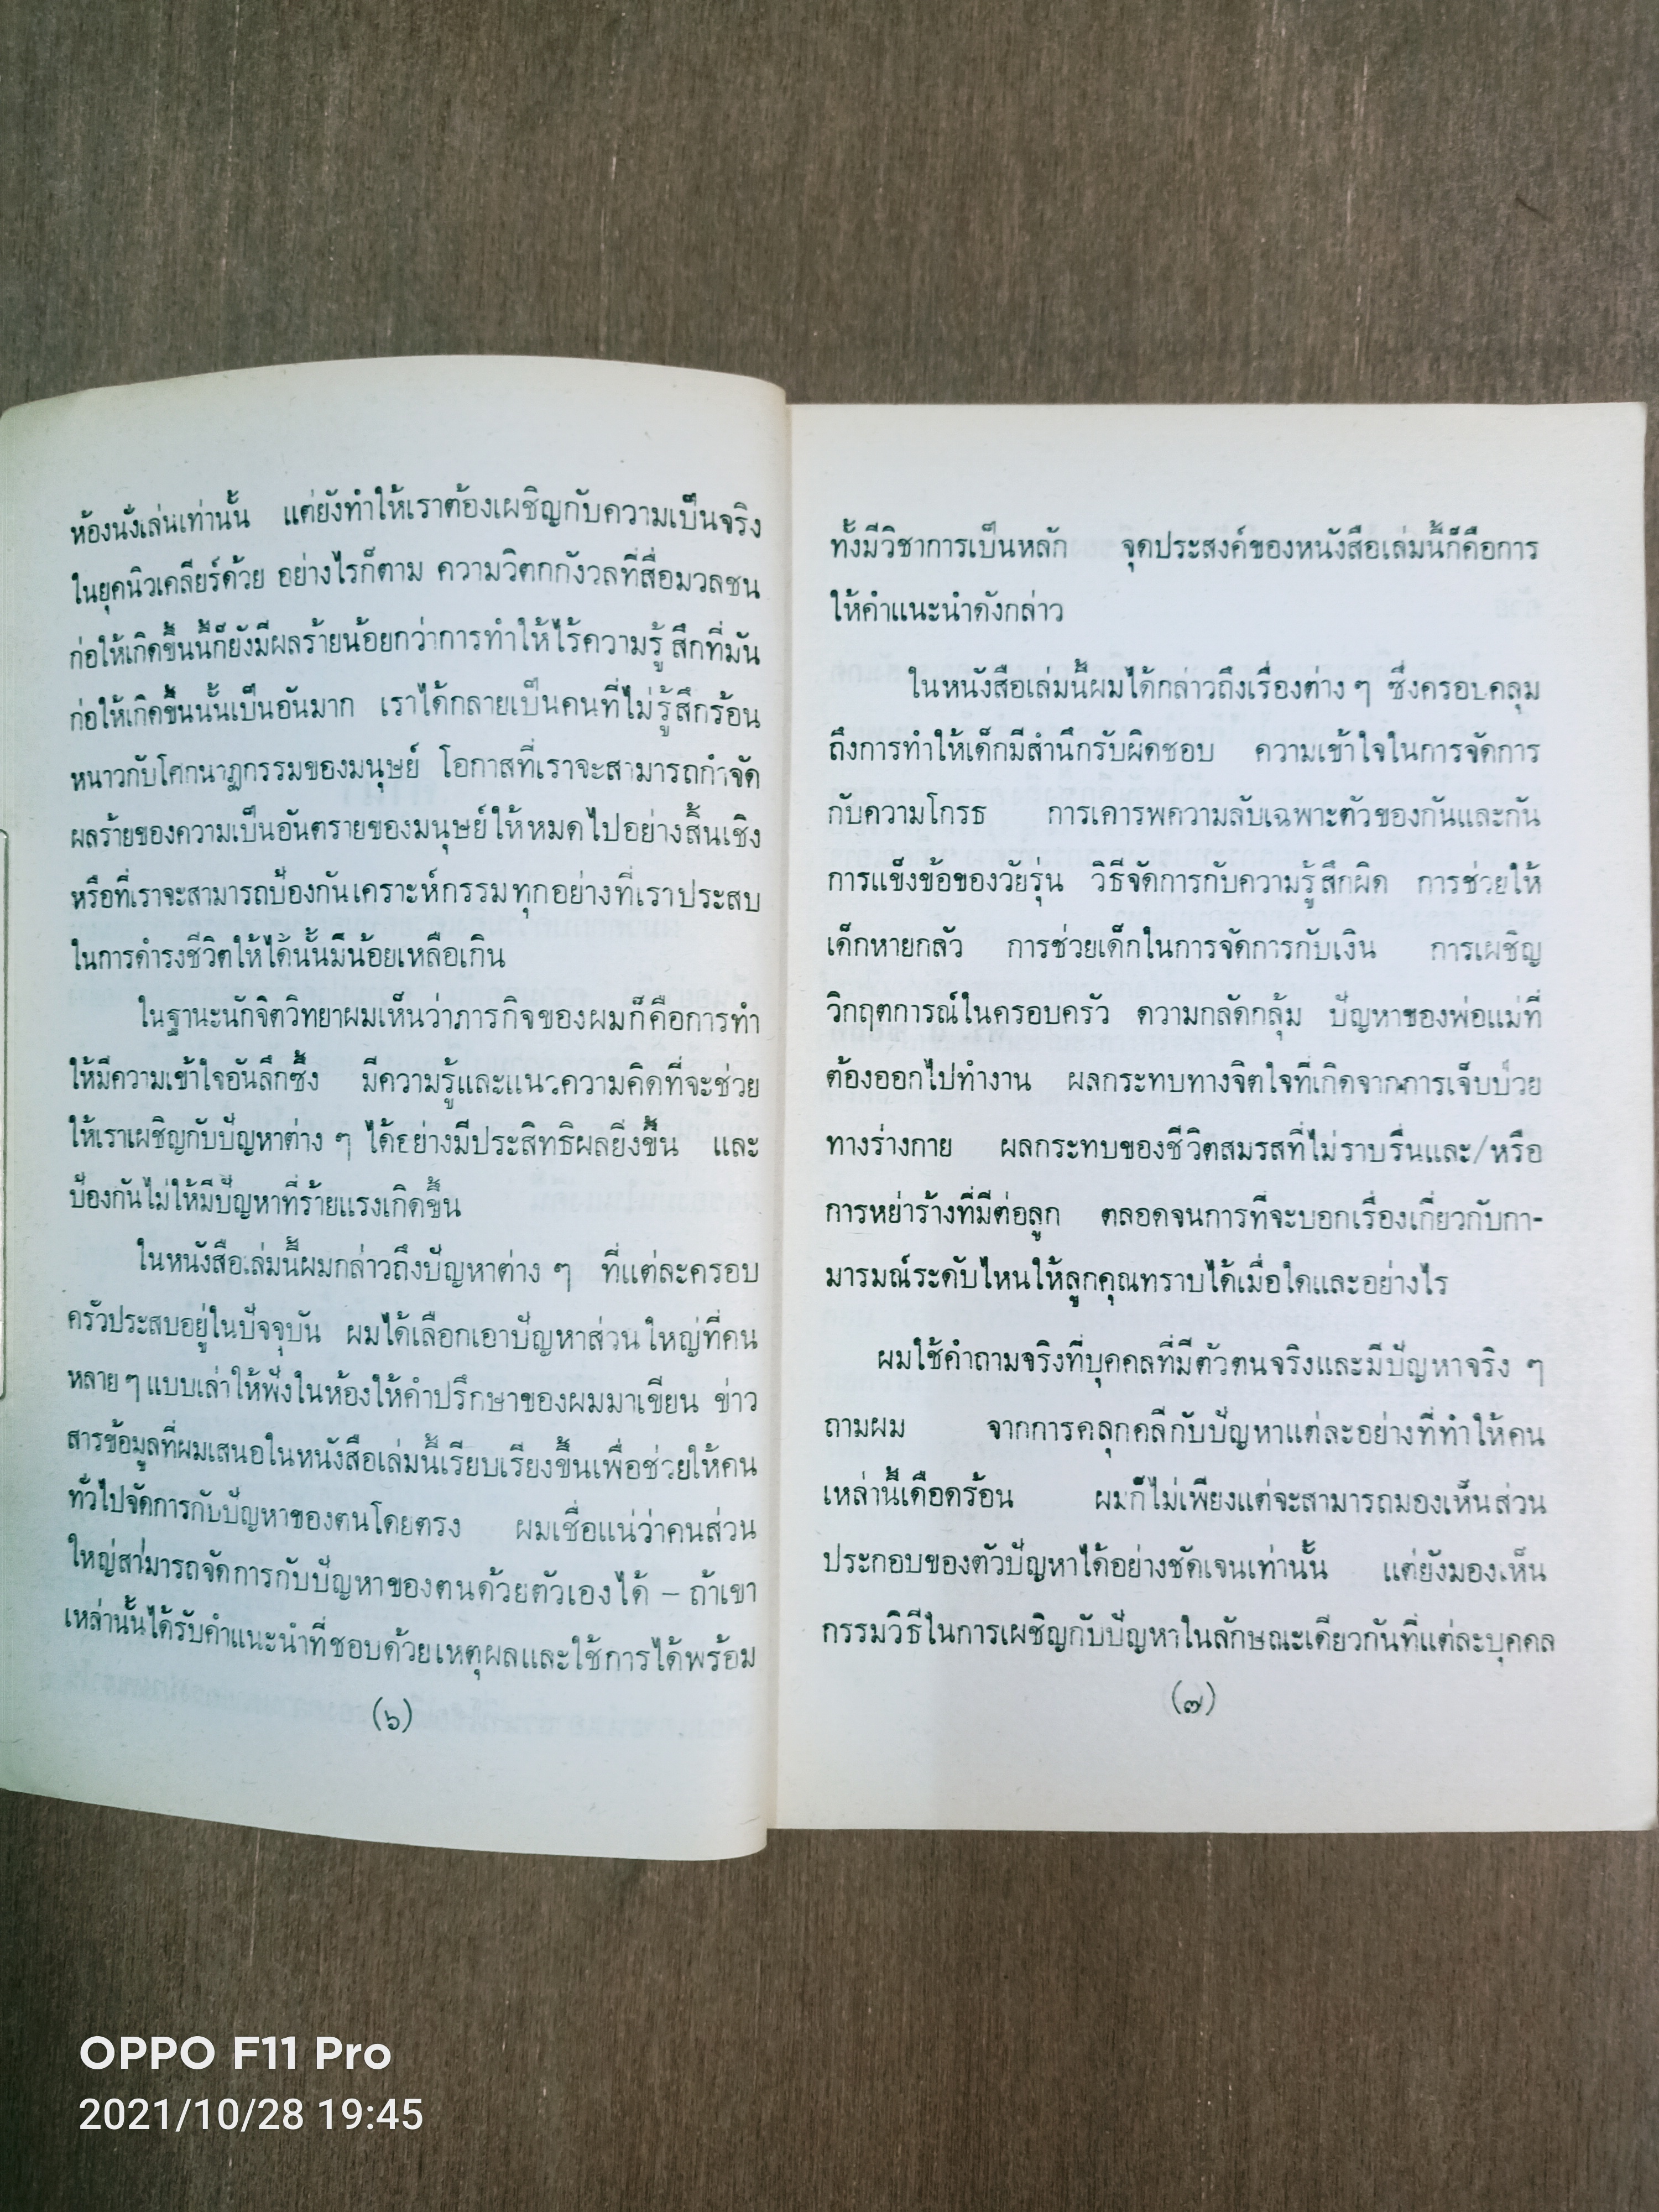 ห้องนั่งเล่นเท่านั้น แต่ยังทำให้เราต้องเผชิญกับความเป็นจริง
ในยุคนิวเคลียร์ด้วย อย่างไรก็ตาม ความวิตกกังวลที่สื่อมวลชน
ก่อให้เกิดขึ้นนี้ก็ยังมีผลร้ายน้อยกว่าการทำให้ไร้ความรู้สึกที่มัน
ก่อให้เกิดขึ้นนั้นเป็นอันมาก เราได้กลายเป็นคนที่ไม่รู้สึกร้อน
หนาวกับโศกนาฏกรรมของมนุษย์ โอกาสที่เราจะสามารถกำจัด
ผลร้ายของความเป็นอันตรายของมนุษย์ให้หมดไปอย่างสิ้นเชิง
หรือที่เราจะสามารถป้องกันเคราะห์กรรมทุกอย่างที่เราประสบ
ในการดำรงชีวิตให้ได้นั้นมีน้อยเหลือเกิน
ในฐานะนักจิตวิทยาผมเห็นว่าภารกิจของผมก็คือการทำ
ให้มีความเข้าใจอันลึกซึ้ง มีความรู้และแนวความคิดที่จะช่วย
ให้เราเผชิญกับปัญหาต่าง ๆ ได้อย่างมีประสิทธิผลยิ่งขึ้น และ
ป้องกันไม่ให้มีปัญหาที่ร้ายแรงเกิดขึ้น
ในหนังสือเล่มนี้ผมกล่าวถึงปัญหาต่าง ๆ ที่แต่ละครอบ
ครัวประสบอยู่ในปัจจุบัน ผมได้เลือกเอาปัญหาส่วนใหญ่ที่คน
หลาย ๆ แบบเล่าให้ฟังในห้องให้คำปรึกษาของผมมาเขียน ข่าว
สารข้อมูลที่ผมเสนอในหนังสือเล่มนี้เรียบเรียงขึ้นเพื่อช่วยให้คน
ทั่วไปจัดการกับปัญหาของตนโดยตรง ผมเชื่อแน่ว่าคนส่วน
ใหญ่สามารถจัดการกับปัญหาของตนด้วยตัวเองได้ – ถ้าเขา
เหล่านั้นได้รับคำแนะนำที่ชอบด้วยเหตุผลและใช้การได้พร้อม
(๖)
ทั้งมีวิชาการเป็นหลัก จุดประสงค์ของหนังสือเล่มนี้ก็คือการ
ให้คำแนะนำดังกล่าว
ในหนังสือเล่มนี้ผมได้กล่าวถึงเรื่องต่าง ๆ ซึ่งครอบคลุม
ถึงการทำให้เด็กมีสำนึกรับผิดชอบ ความเข้าใจในการจัดการ
กับความโกรธ การเคารพความลับเฉพาะตัวของกันและกัน
การแข็งข้อของวัยรุ่น วิธีจัดการกับความรู้สึกผิด การช่วยให้
เด็กหายกลัว การช่วยเด็กในการจัดการกับเงิน การเผชิญ
วิกฤตการณ์ในครอบครัว ความกลัดกลุ้ม ปัญหาของพ่อแม่ที่
ต้องออกไปทำงาน ผลกระทบทางจิตใจที่เกิดจากการเจ็บป่วย
ทางร่างกาย ผลกระทบของชีวิตสมรสที่ไม่ราบรื่นและ/หรือ
การหย่าร้างที่มีต่อลูก ตลอดจนการที่จะบอกเรื่องเกี่ยวกับกา-
มารมณ์ระดับไหนให้ลูกคุณทราบได้เมื่อใดและอย่างไร
ผมใช้คำถามจริงที่บุคคลที่มีตัวตนจริงและมีปัญหาจริง ๆ
ถามผม จากการคลุกคลีกับปัญหาแต่ละอย่างที่ทำให้คน
เหล่านี้เดือดร้อน ผมก็ไม่เพียงแต่จะสามารถมองเห็นส่วน
ประกอบของตัวปัญหาได้อย่างชัดเจนเท่านั้น แต่ยังมองเห็น
กรรมวิธีในการเผชิญกับปัญหาในลักษณะเดียวกันที่แต่ละบุคคล
(๗)
OPPO F11 Pro
2021/10/28 19:45